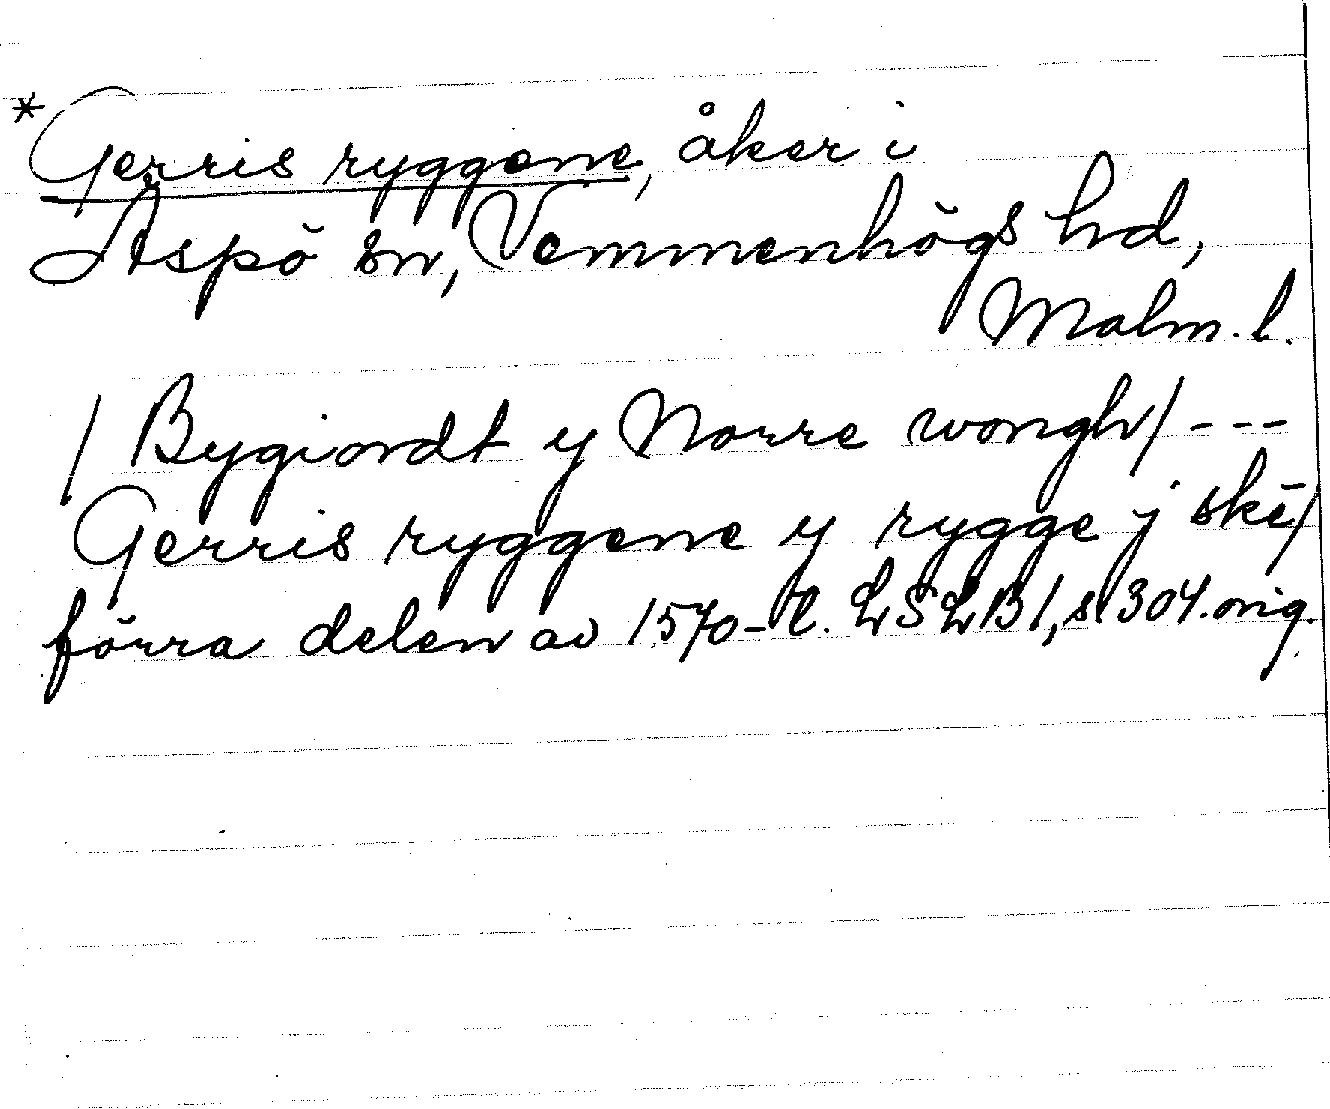 * Gerris ryggene, åker i
Äspö sn, Vemmenhögs hd,
Malm. l.
/ Bygiordt y Norre wongh / - - -
Gerris ryggene y rygge j skē /
förra delen av 1570-t. LSLB 1, s 304. orig.